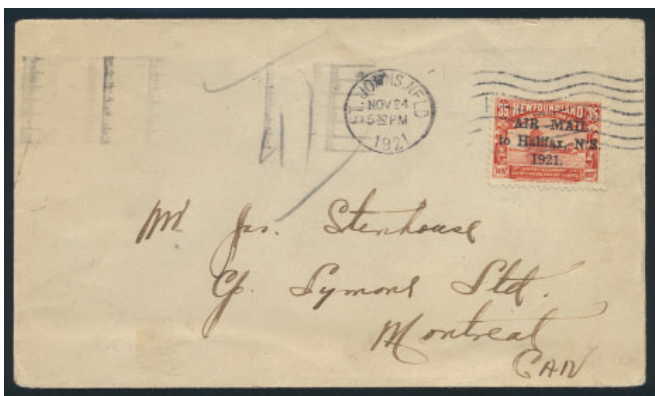 ST. JOHN'S, NFLD
NOV 24
5-30 PM
1921
35 NEWFOUNDLAND 35
AIR MAIL
to Halifax, N.S.
1921.
Mr Jas. Stenhouse
C/o. Symons Ltd.
Montreal
CAN